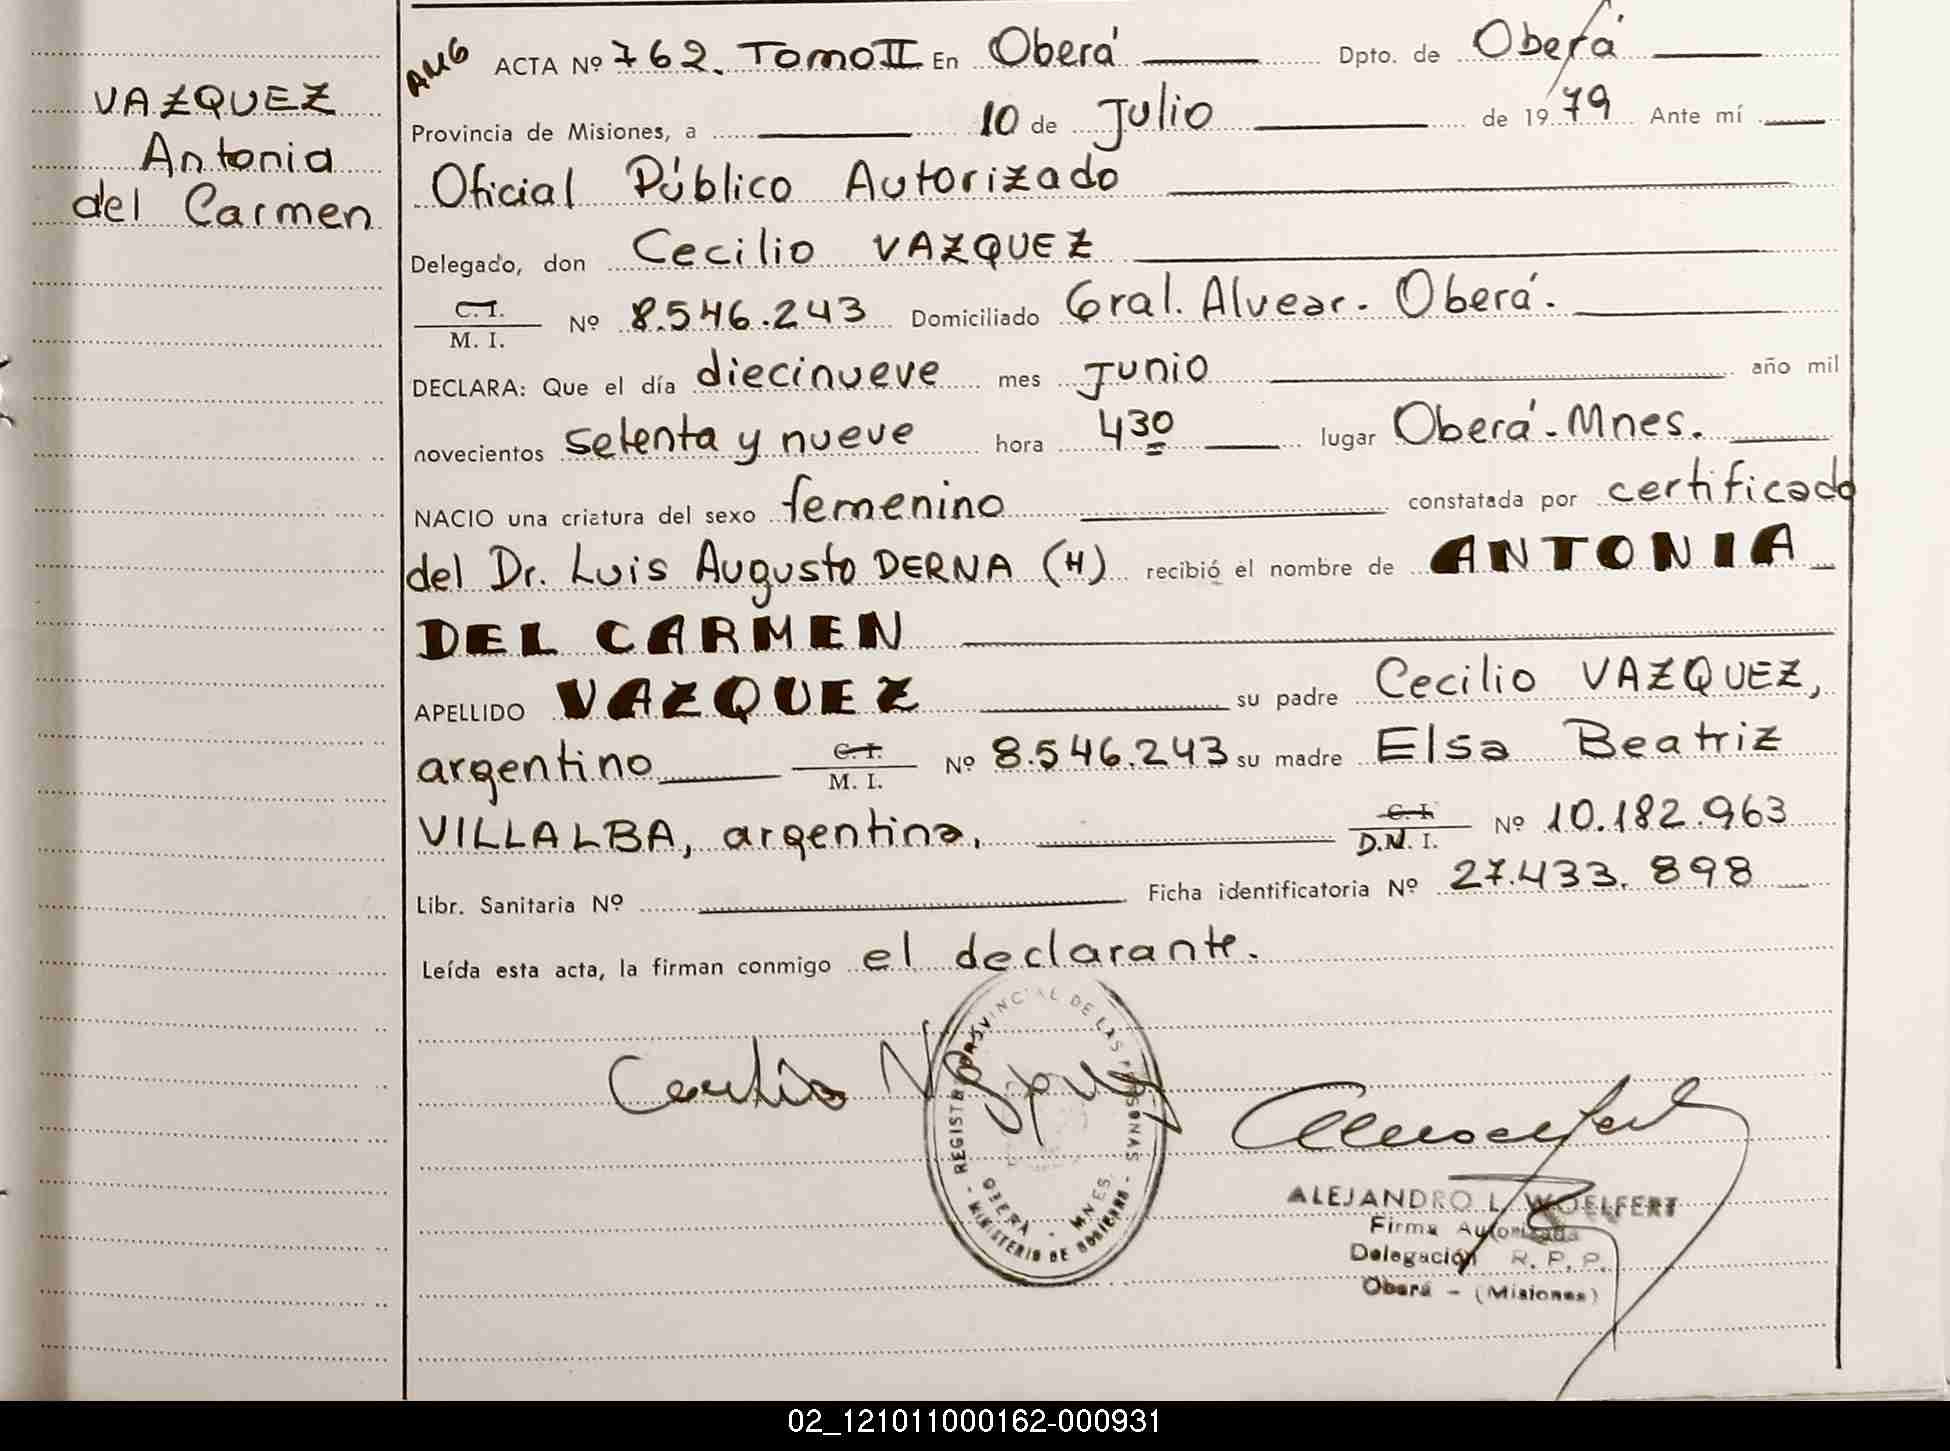 VAZQUEZ
Antonia
del Carmen
AMG ACTA Nº 762. Tomo II En Oberá Dpto. de Oberá
Provincia de Misiones, a 10 de Julio de 1979 Ante mí
Oficial Público Autorizado
Delegado, don Cecilio VAZQUEZ
C.I.
M. I. Nº 8.546.243 Domiciliado Gral. Alvear. Oberá.
DECLARA: Que el día diecinueve mes Junio año mil
novecientos setenta y nueve hora 430 lugar Oberá - Mnes.
NACIO una criatura del sexo femenino constatada por certificado
del Dr. Luis Augusto DERNA (H) recibió el nombre de ANTONIA
DEL CARMEN
APELLIDO VAZQUEZ su padre Cecilio VAZQUEZ,
argentino C.I. M. I. Nº 8.546.243 su madre Elsa Beatriz
VILLALBA, argentina, C.I. D.N.I. Nº 10.182.963
Libr. Sanitaria Nº Ficha identificatoria Nº 27.433.898
Leída esta acta, la firman conmigo el declarante.
Cecilio Vazquez
REGISTRO PROVINCIAL DE LAS PERSONAS
OBERÁ - MNES.
- MINISTERIO DE GOBIERNO -
ALEJANDRO L. WOELFERT
Firma Autorizada
Delegación R. P. P.
Oberá - (Misiones)
02_121011000162-000931